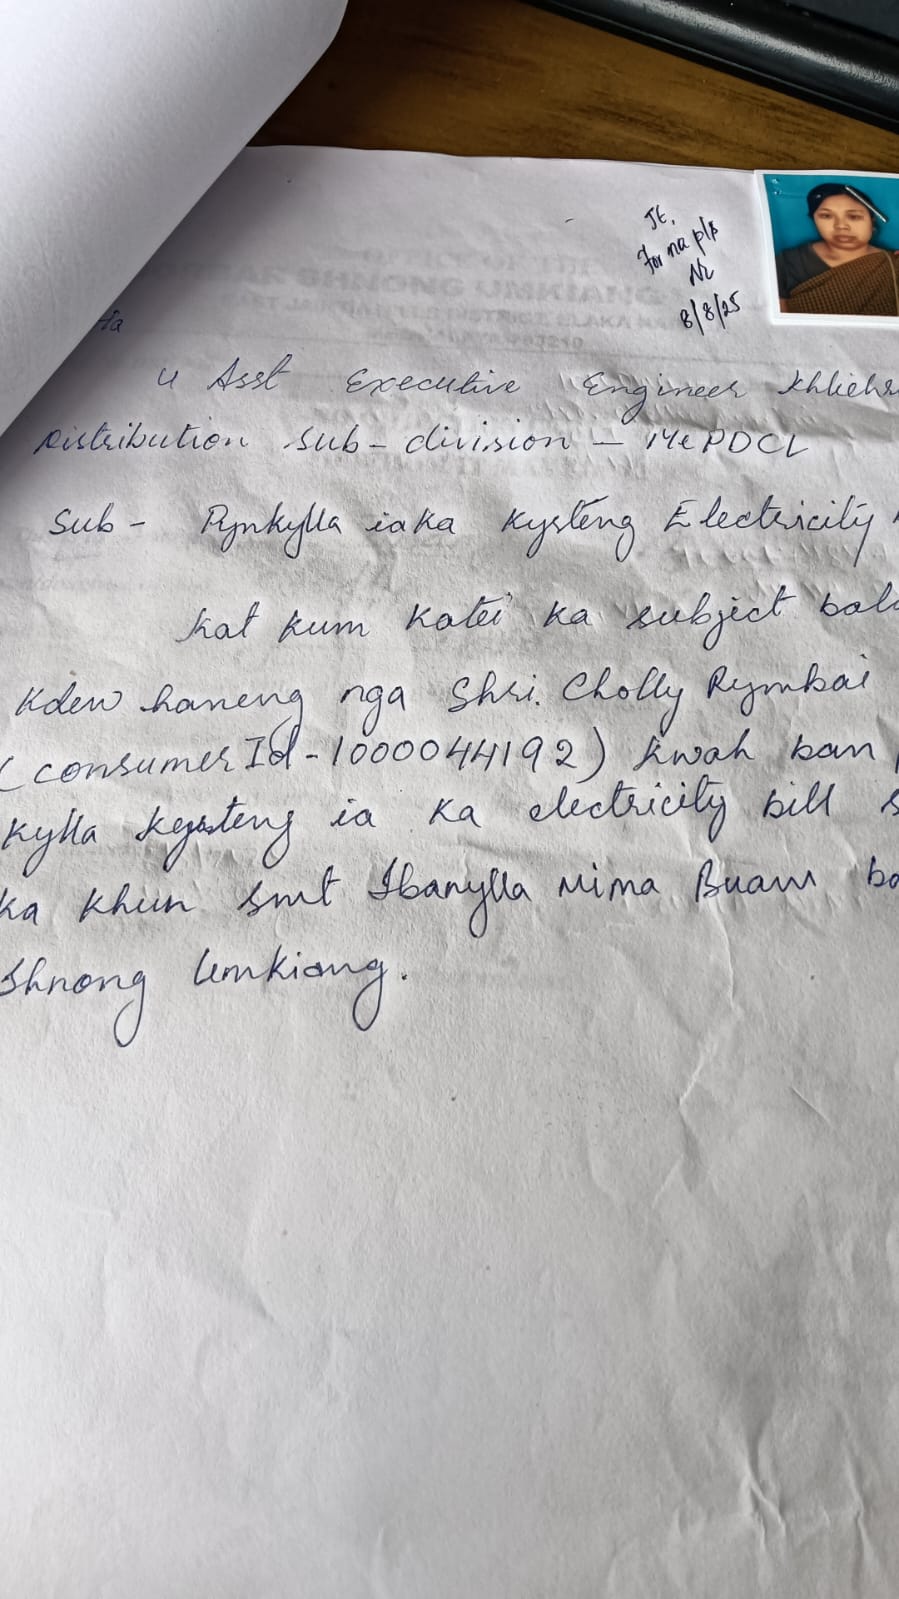 JE,
For na p/s
8/8/25
Ha
u Asst Executive Engineer Khliehr
Distribution Sub-division - MePDCL
Sub - Pynkylla iaka Kyrteng Electricity
Kat kum katei ka subject bala
Kdew haneng nga Shri. Cholly Rymbai
(consumer Id - 1000044192) kwah ban
kylla kyrteng ia ka electricity bill
ka khun smt Ibanylla Mima Buam ba
Shnong Umkiang.